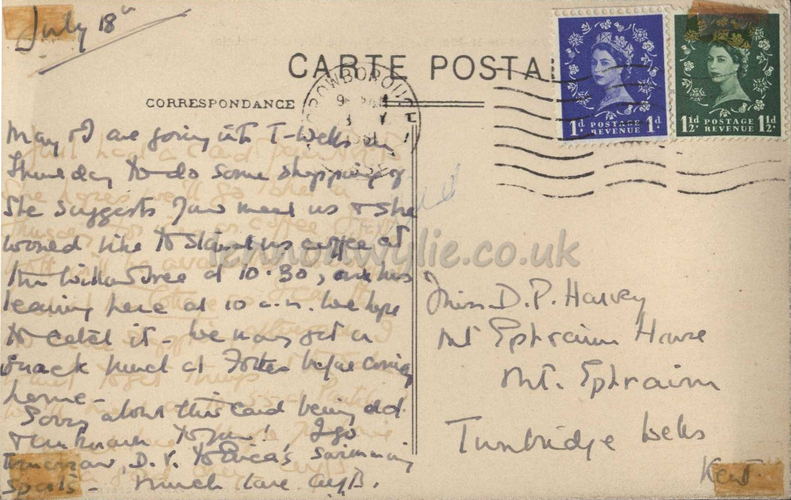 July 18th
CARTE POSTALE
CORRESPONDANCE
CROWBOROUGH
1d POSTAGE REVENUE 1d
1½d POSTAGE REVENUE 1½d
May & I are going into T-Wells on
Thursday to do some shopping &
she suggests you meet us & she
would like to stand us coffee at
the Willow Tree at 10.30, our bus
leaving here at 10 a.m. We hope
to catch it - We may get a
snack lunch at Fortes before coming
home -
Sorry about this card being old
& unknown to you! I go
tomorrow, D.V. to swimming
sports - Much love
lennonwylie.co.uk
Miss D. P. Harvey
Mt Ephraim House
Mt. Ephraim
Tunbridge Wells
Kent.